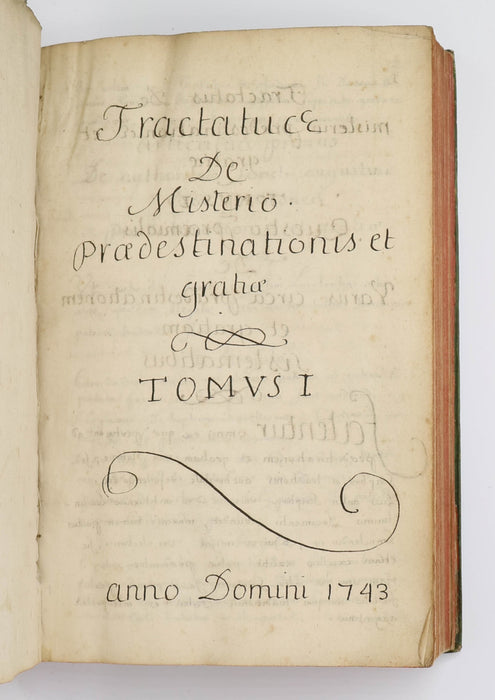 Tractatus
De
Misterio.
Prædestinationis et
gratiæ
TOMVS I
anno Domini 1743